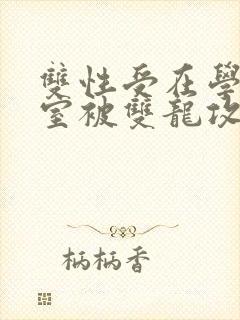 雙性受在學
室被雙龍攻
柄柄香